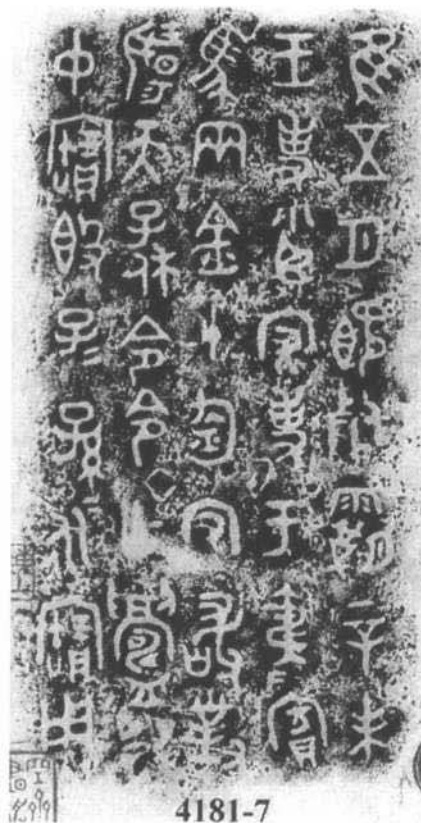 隹五月既死霸辛未
王事小臣守事于夷=賓
馬兩金十鈞守敢對
揚天子休令鑄
中寶簋子=孫=永寶用
4181-7